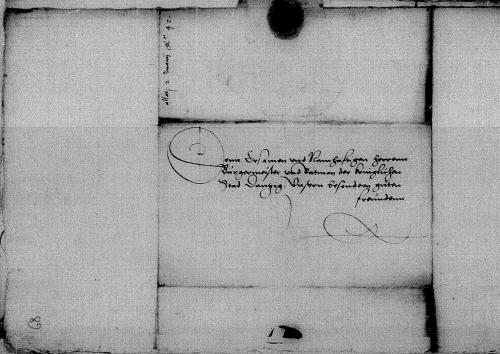 Denn Ersamen und Namhafftigen herrenn
Burgermeister und Ratman der koniglichen
Stad Dantzig. Unsern besondern guten
freundenn
68